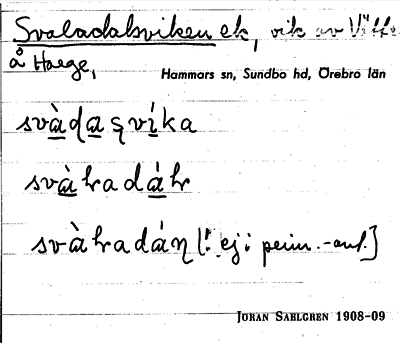 Svaladalsviken ek, vik av Vitt
å Harge,
Hammars sn, Sundbo hd, Örebro län
svàdaşvíka
svàhradáhr
svàhradáη [! ej i perim.-anf.]
JÖRAN SAHLGREN 1908-09